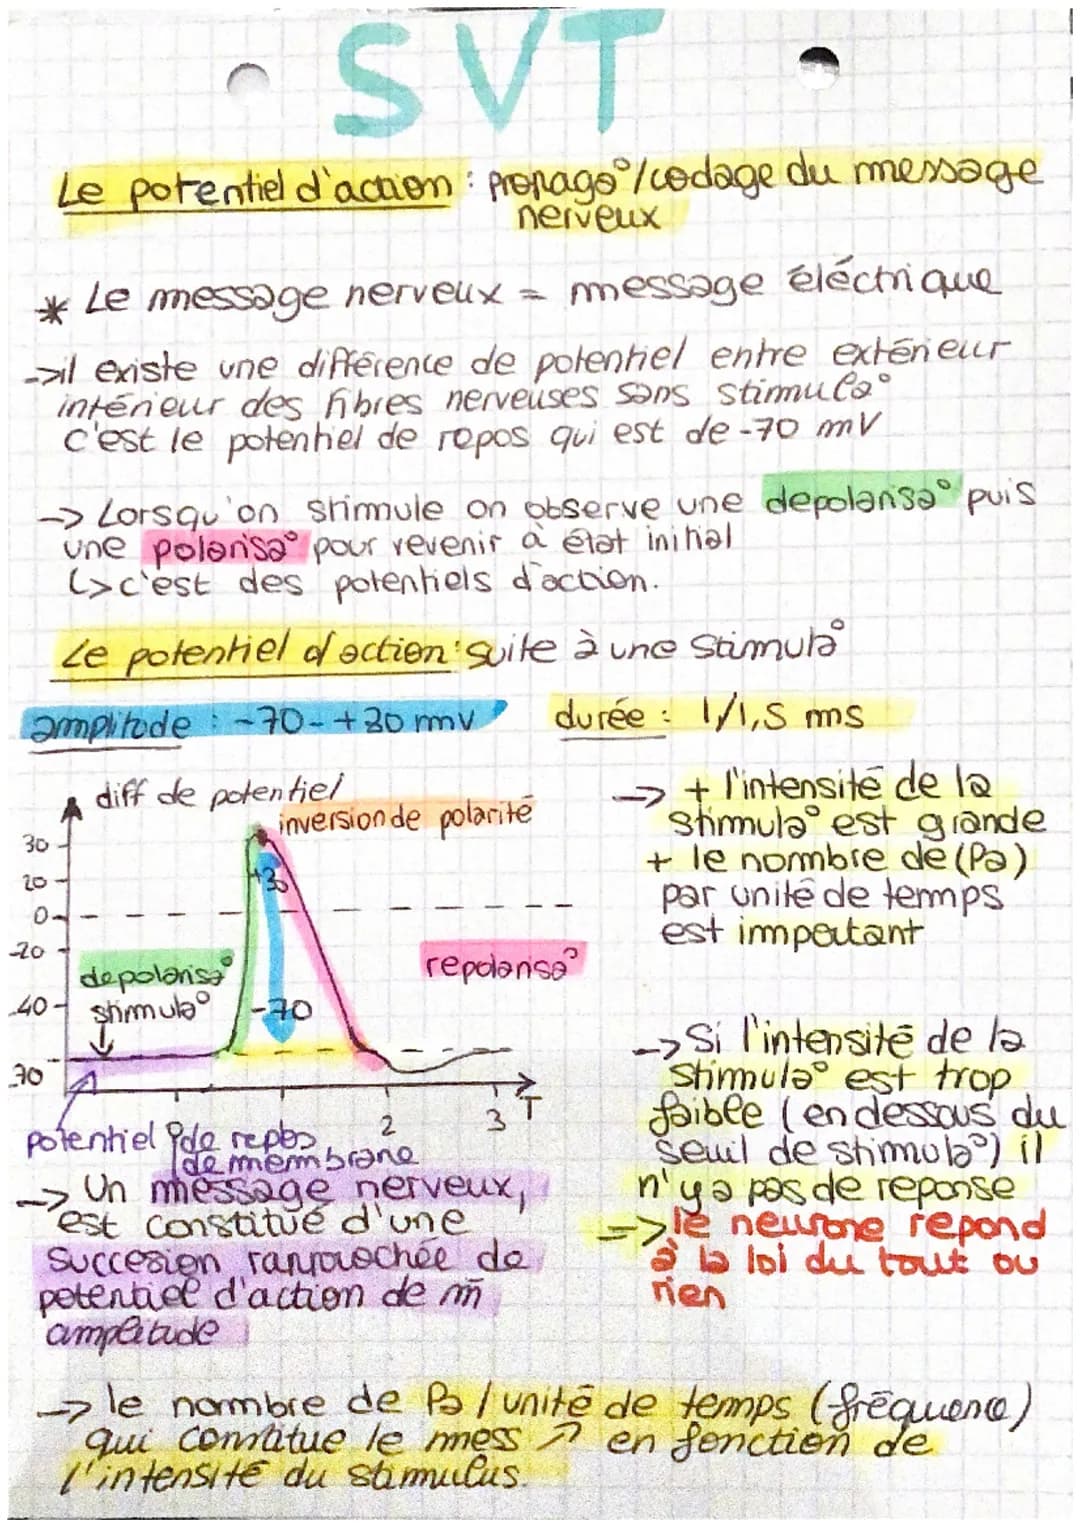 SVT
Le potentiel d'action : propaga°/codage du message
nerveux
* Le message nerveux = message éléctrique
->il existe une différence de potentiel entre extérieur
intérieur des fibres nerveuses sans stimula°
c'est le potentiel de repos qui est de -70 mV
-> Lorsqu'on stimule on observe une depolarisa° puis
une polarisa° pour revenir à état initial
↳>c'est des potentiels d'action.
Le potentiel d'action : suite à une stimula°
amplitude : -70-+30 mv
durée : 1/1,5 ms
diff de potentiel
inversion de polarité
30
20
0
-20
-40
30
+30
-70
depolarisa°
stimula°
repolarisa°
2
3
T
potentiel de repos
de membrane
-> + l'intensité de la
stimula° est grande
+ le nombre de (Pa)
par unité de temps
est important
-> Si l'intensité de la
stimula° est trop
faible (en dessous du
seuil de stimula°) il
n'ya pas de reponse
=> le neurone repond
à la loi du tout ou
rien
-> Un message nerveux,
est constitué d'une
succesion rapprochée de
potentiel d'action de m̄
amplitude
-> le nombre de Pa / unité de temps (fréquence)
qui constitue le mess ↗ en fonction de
l'intensité du stimulus.